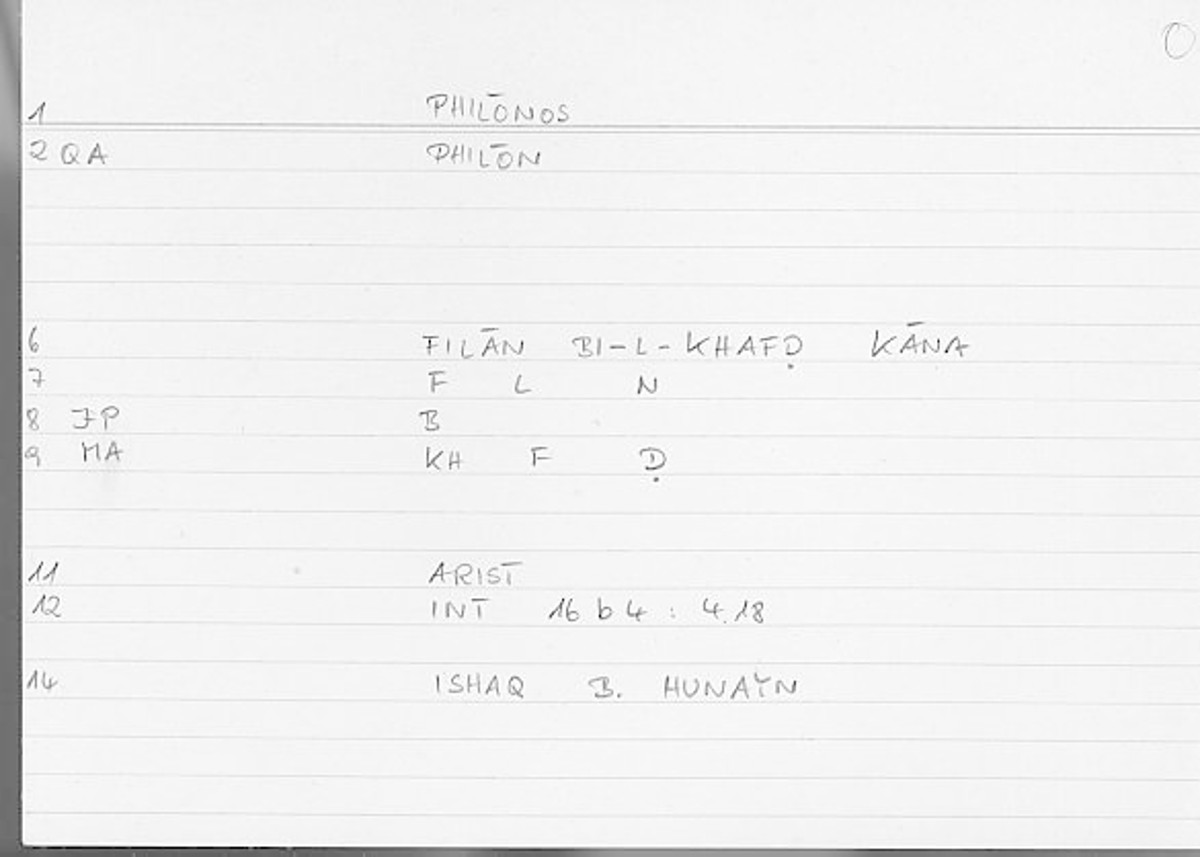 O
1 PHILŌNOS
2 QA PHILŌN
6 FILĀN BI-L-KHAFḌ KĀNA
7 F L N
8 JP B
9 MA KH F Ḍ
11 ARIST
12 INT 16 b 4 : 4.18
14 ISHAQ B. HUNAYN